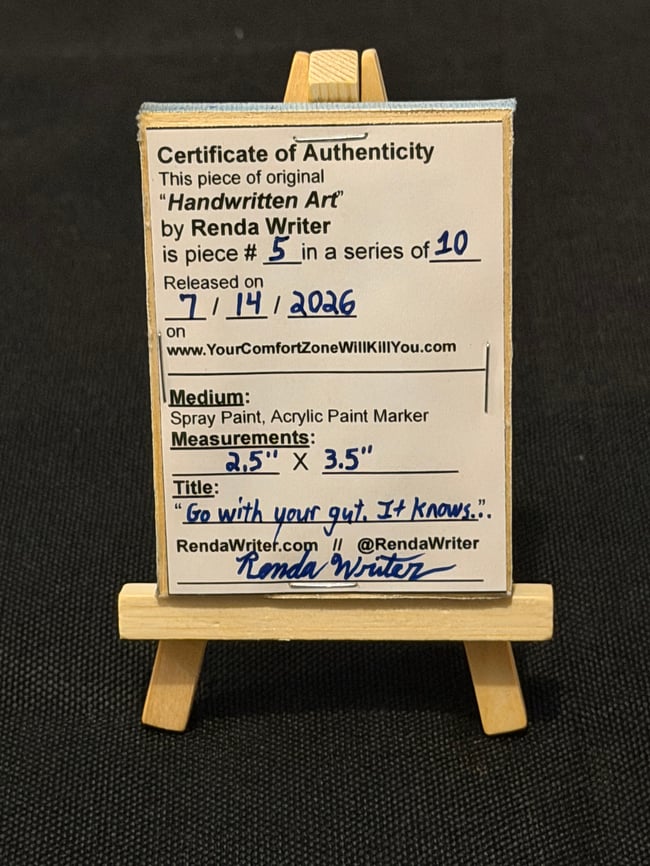 Certificate of Authenticity
This piece of original
"Handwritten Art"
by Renda Writer
is piece # 5 in a series of 10
Released on
7 / 14 / 2026
on
www.YourComfortZoneWillKillYou.com
Medium:
Spray Paint, Acrylic Paint Marker
Measurements:
2.5" X 3.5"
Title:
"Go with your gut. It knows..".
RendaWriter.com // @RendaWriter
Renda Writer